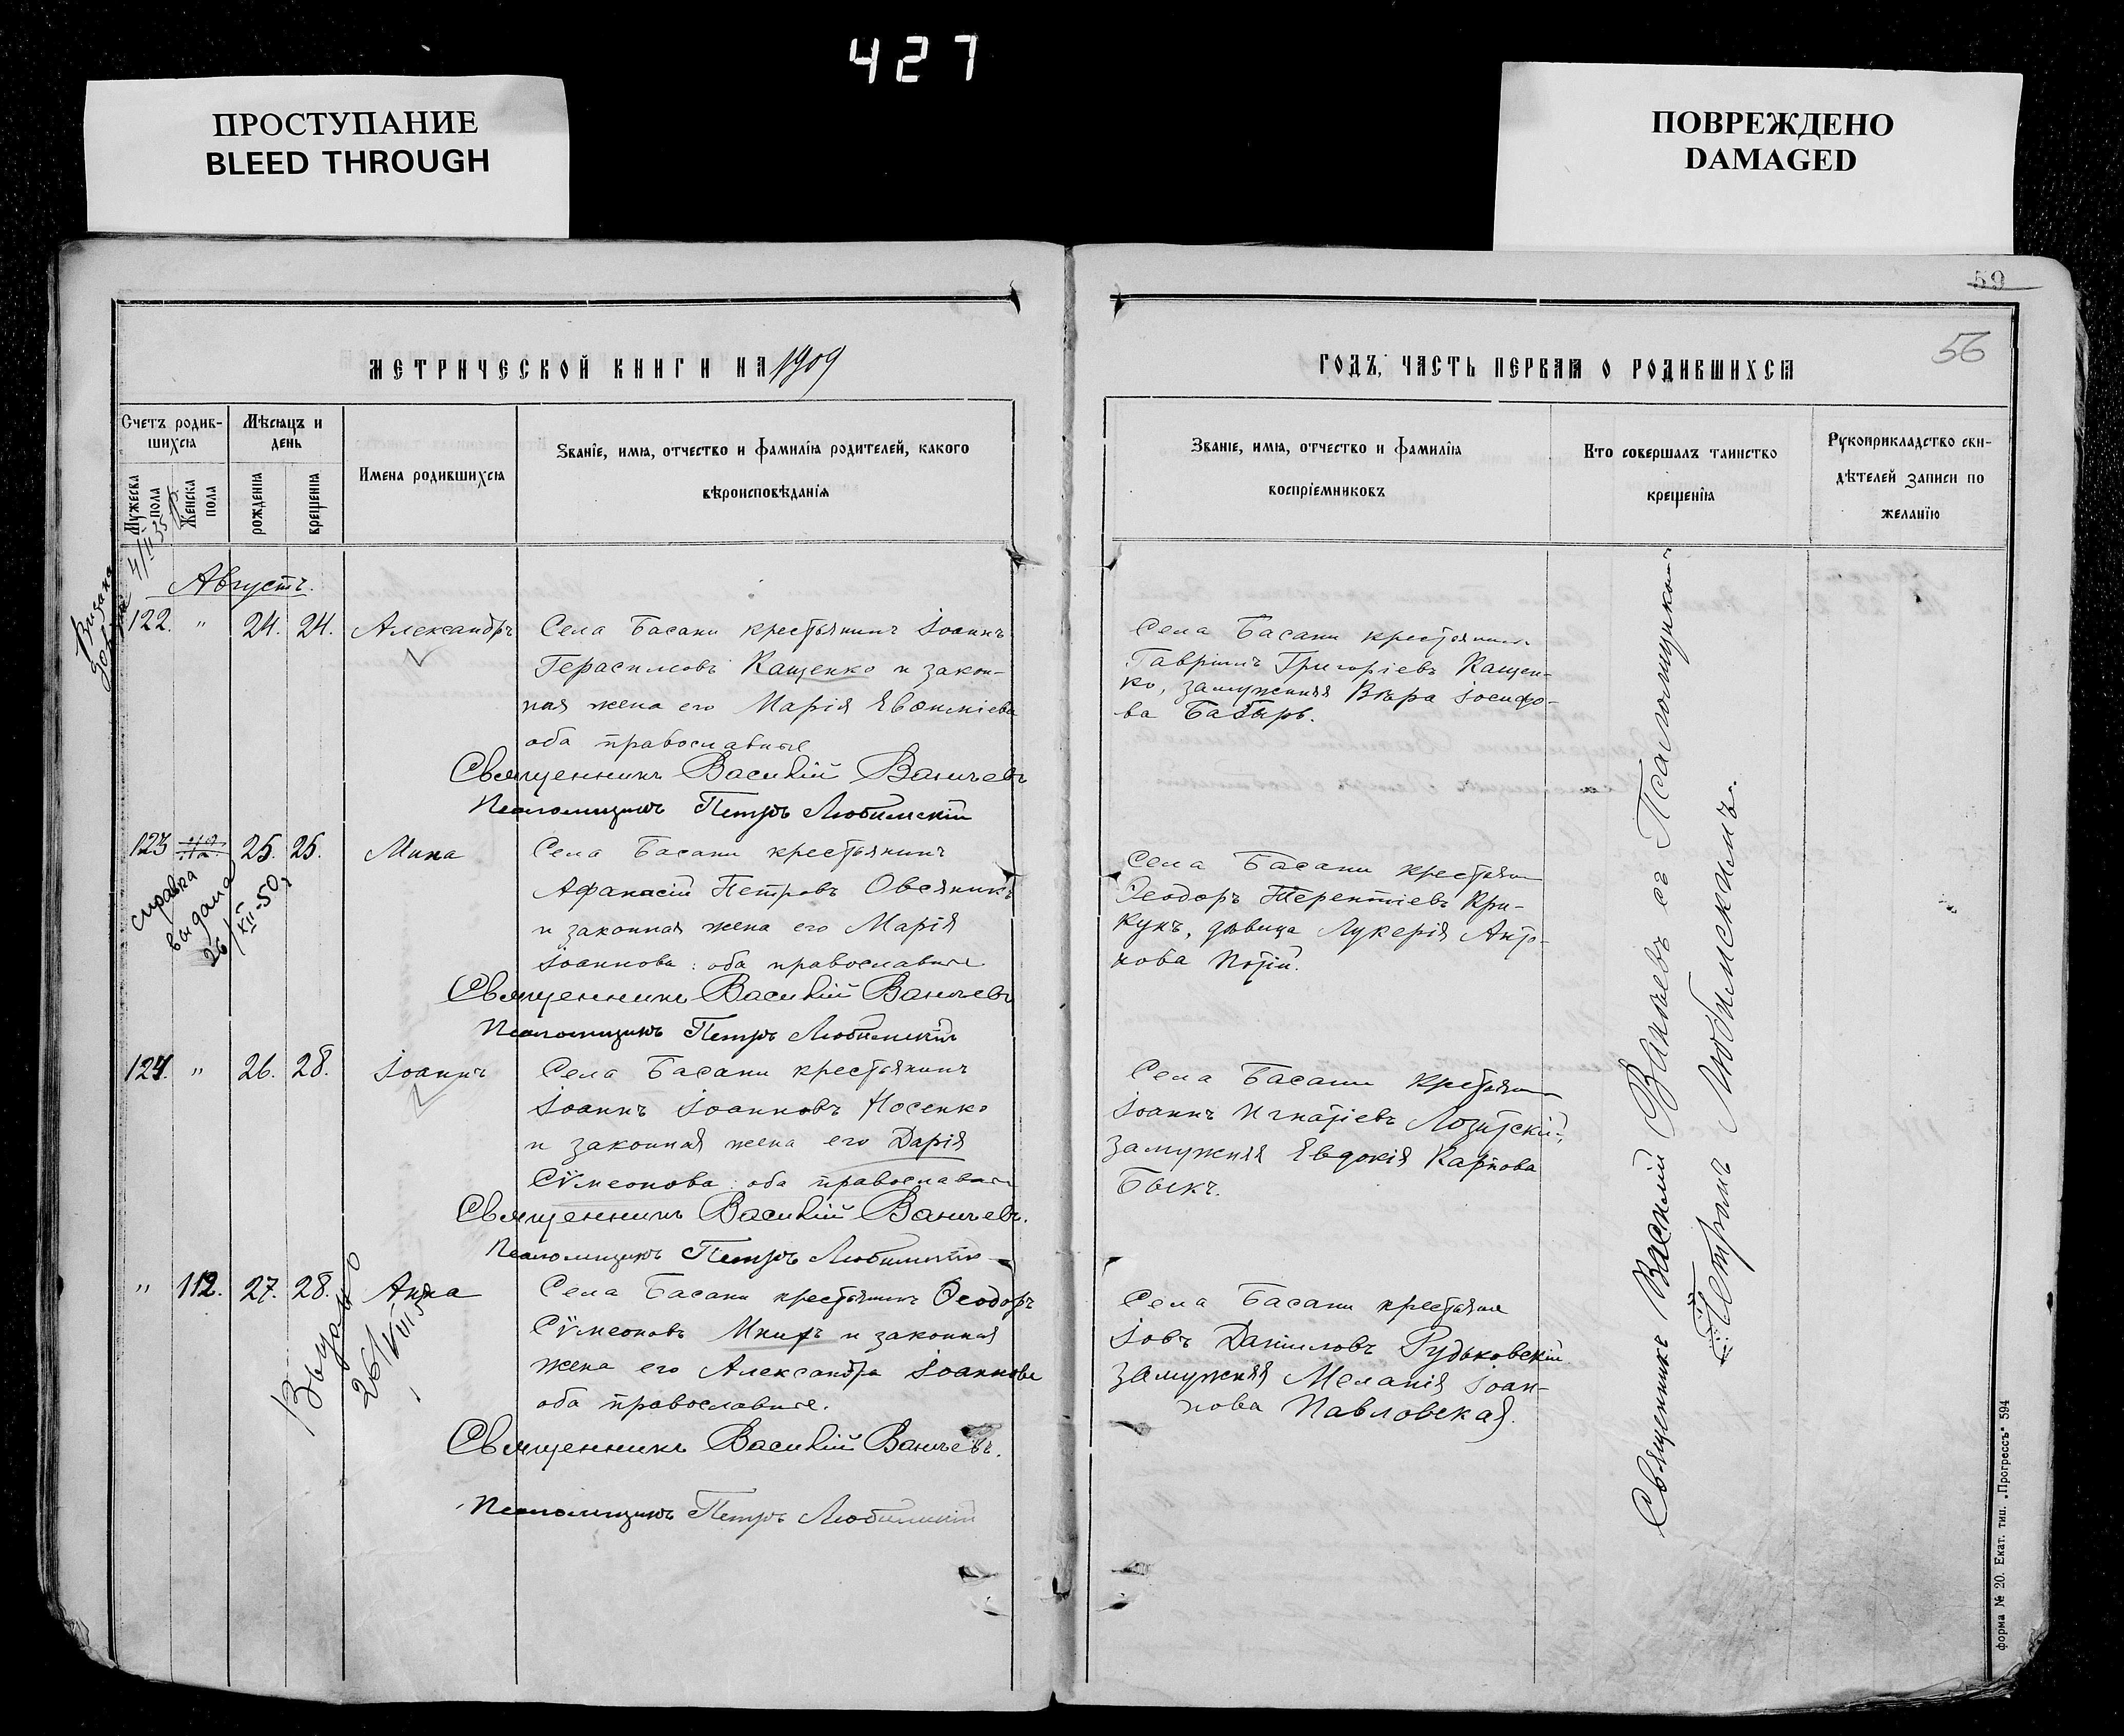 427
ПРОСТУПАНИЕ
BLEED THROUGH
ПОВРЕЖДЕНО
DAMAGED
59
56
МЕТРИЧЕСКОЙ КНИГИ НА 1909
ГОДЪ, ЧАСТЬ ПЕРВАЯ О РОДИВШИХСЯ
Счетъ родив-
шихся
Мужеска
пола
Женска
пола
Мѣсяцъ и
день
рожденія
крещенія
Имена родившихся
Званіе, имя, отчество и фамилія родителей, какого
вѣроисповѣданія
Званіе, имя, отчество и фамилія
воспріемниковъ
Кто совершалъ таинство
крещенія
Рукоприкладство сви-
дѣтелей записи по
желанію
Августъ.
122. " 24. 24. Александръ
Села Басани крестьянинъ Іоаннъ
Герасимовъ Кащенко и закон-
ная жена его Марія
оба православные
Священникъ Василій Ваничевъ
Псаломщикъ Петръ Любимскій
Села Басани крестьянинъ
Гавріилъ Григоріевъ Кащен-
ко, замужняя Вѣра Іосифо-
ва Бабырь.
123 25. 25. Мина
справка
выдана
26/XII-50
Села Басани крестьянинъ
Афанасій Петровъ Овсяникъ
и законная жена его Марія
Іоаннова: оба православные
Священникъ Василій Ваничевъ
Псаломщикъ Петръ Любимскій
Села Басани крестьян
Ѳеодоръ Терентіевъ Кри-
кунъ, дѣвица Лукерія Анто-
нова
124. " 26. 28. Іоаннъ
Села Басани крестьянинъ
Іоаннъ Іоанновъ Носенко
и законная жена его Дарія
Сѵмеонова: оба православные
Священникъ Василій Ваничевъ.
Псаломщикъ Петръ Любимскій
Села Басани крестьян
Іоаннъ Игнатіевъ Лозитскій,
замужняя Евдокія Карпова
Быкъ.
" 112. 27. 28. Анна
Выдано
Села Басани крестьянинъ Ѳеодоръ
Сѵмеоновъ и законная
жена его Александра Іоаннова
оба православные.
Священникъ Василій Ваничевъ.
Псаломщикъ Петръ Любимскій
Села Басани крестьян
Іовъ Даниловъ Рудьковскій
замужняя Меланія Іоан-
нова Павловская.
Священникъ Василій Ваничевъ съ Псаломщикомъ
Петромъ Любимскимъ.
форма № 20. Екат. тип. „Прогрессъ" 594